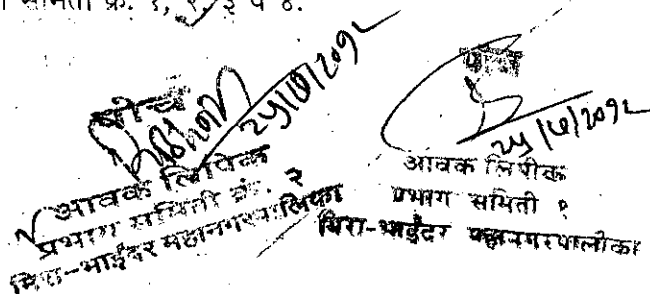 समिती क्र. १, २, ३ व ४.
पोच
२५/७/२०१२
आवक लिपिक
प्रभाग समिती क्रं. २
मिरा-भाईंदर महानगरपालिका
पोच
२५/७/२०१२
आवक लिपीक
प्रभाग समिती १
मिरा-भाईंदर महानगरपालीका